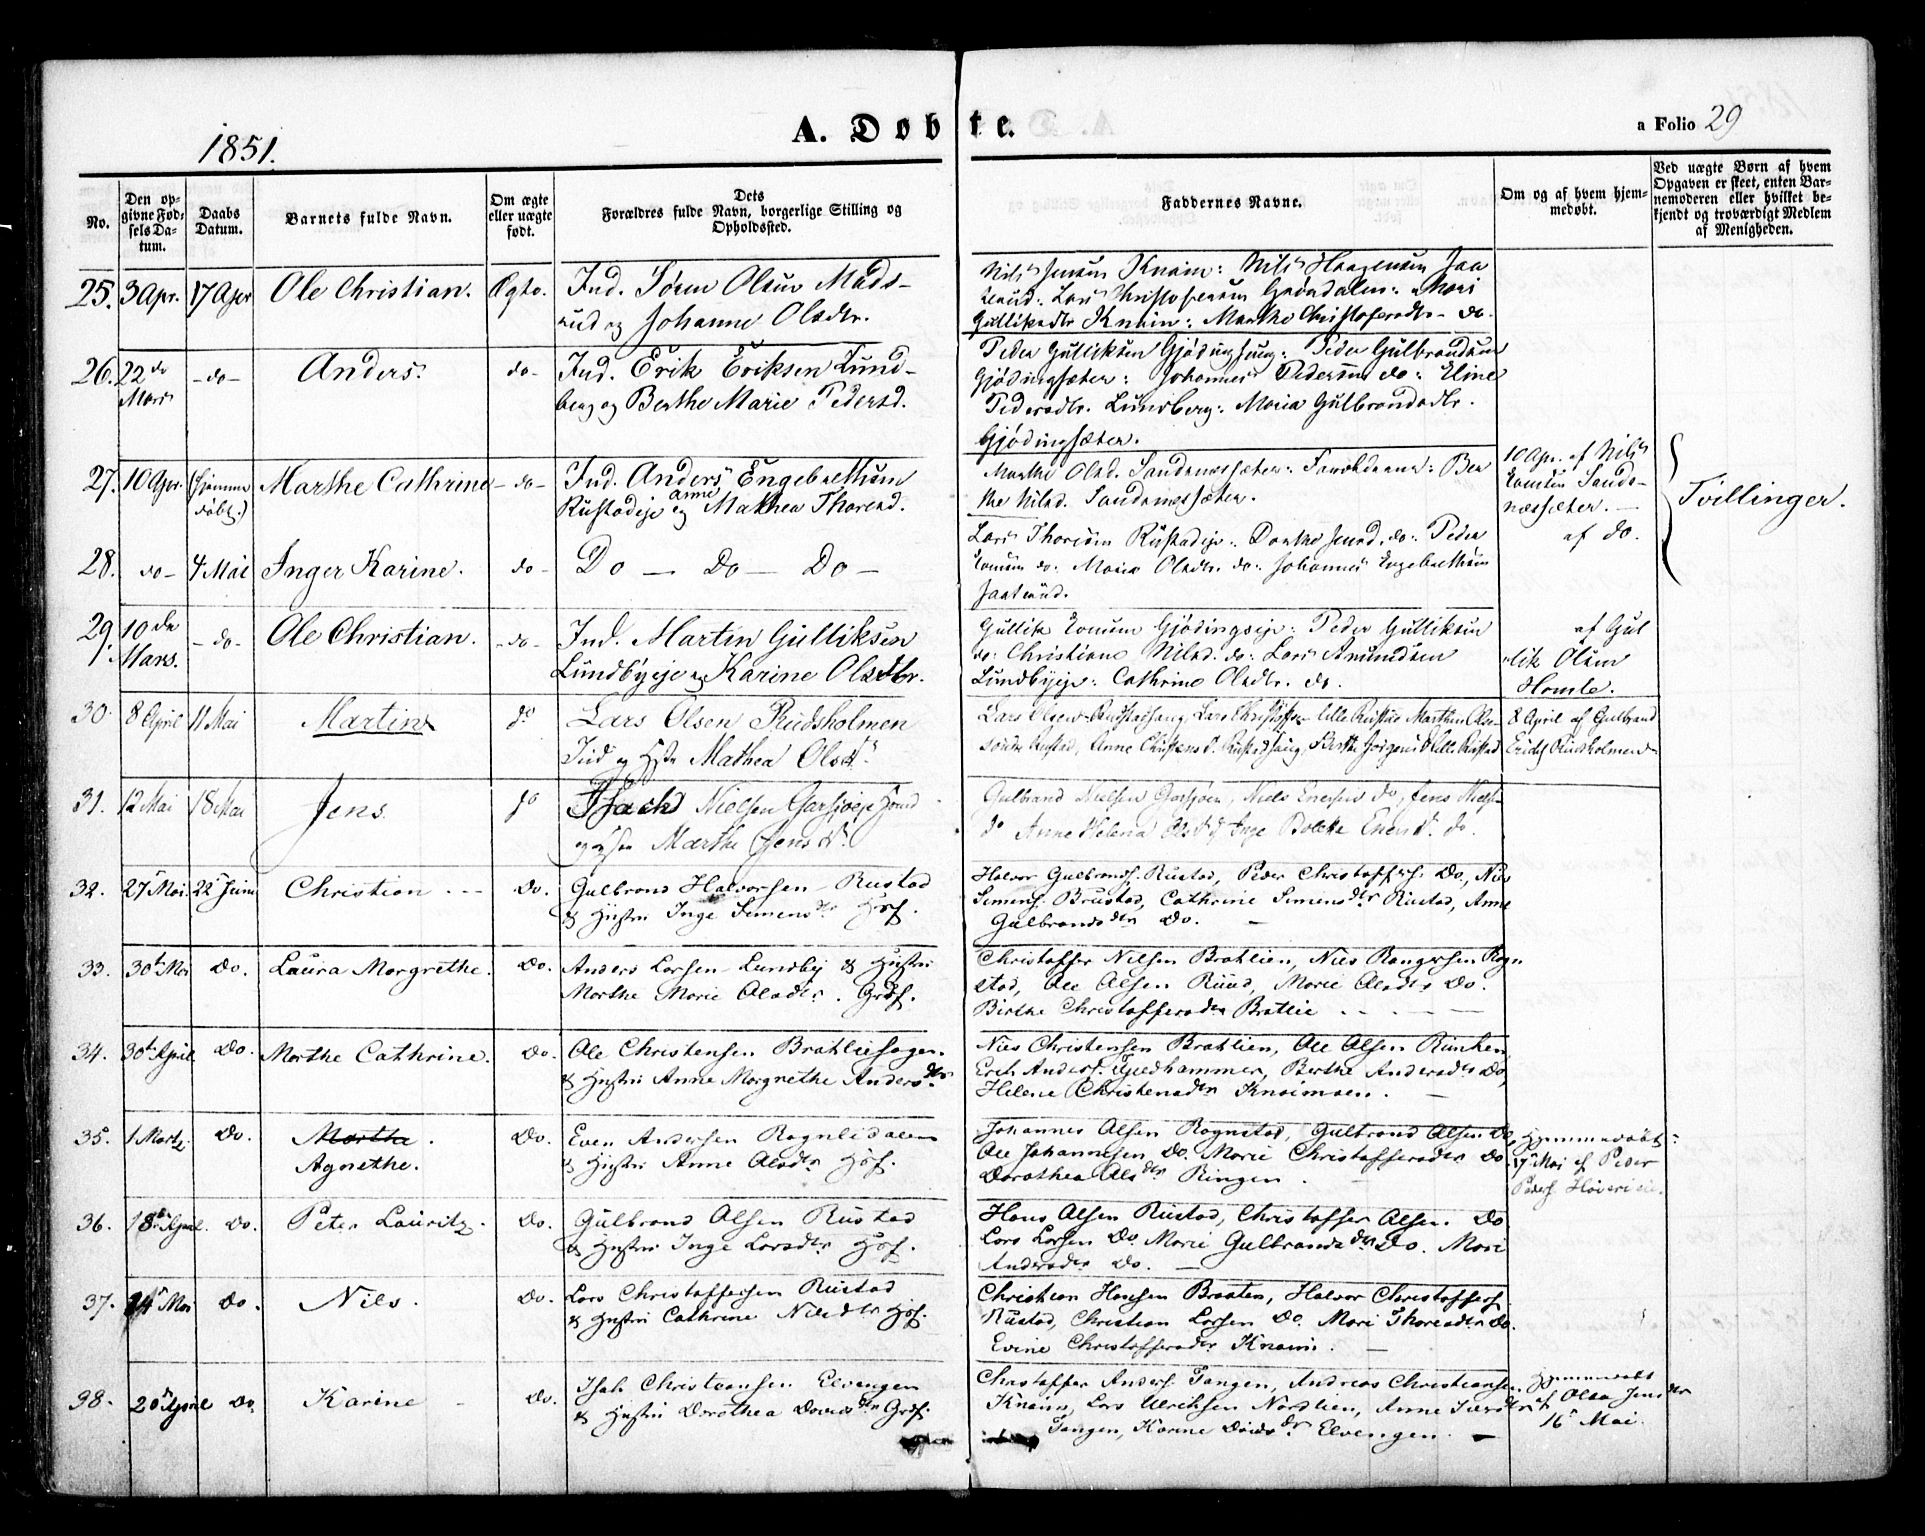 1851.
A. Døbte.
a Folio 29
No.
Den opgivne Fødsels Datum.
Daabs Datum.
Barnets fulde Navn.
Om ægte eller uægte født.
Dets Forældres fulde Navn, borgerlige Stilling og Opholdssted.
Faddernes Navne.
Om og af hvem hjemmedøbt.
Ved uægte Børn af hvem Opgaven er skeet, enten Barnemoderen eller hvilket bekjendt og troværdigt Medlem af Menigheden.
25. 3 Apr. 17 Apr Ole Christian. Ægte. Ind. Søren Olsen Mads-
rud og Johanne Olsdtr.
Nils Jensen Knaim: Nils Haagensen
Lars Christofersen Grøndalen: Mari
Gulliksdtr Knaim: Marthe Christofersdtr - do.
26. 22de Mars - do - Anders. do - Ind. Erik Eriksen Lund-
berg og Berthe Marie Pedersd.
Peder Gulliksen Gjødingseng: Peder Gulbrandsen
Gjødingsæter: Johannes Pedersen do: Eline
Pedersdtr. Lundberg: Maria Gulbrandsdtr.
Gjødingsæter.
27. 10 Apr. (hjemme døbt.) Marthe Cathrine - do - Ind. Anders Engebrethsen
Rustadeje og anne Mathea Thorsd.
Marthe Olsd. Sandnessæter: Ber
the Nilsd. Sandnessæter.
10 Apr. af Nils
Sandnessæter.
Tvillinger.
28. do - 4 Mai Inger Karine. do - Do - Do - Do -
Lars Thorsen Rustadeje: Dorthe do: Peder
do: Maria Olsdtr. do: Johannes Engebrethsen
af do.
29. 10de Mars. - do - Ole Christian. - do - Ind. Martin Gulliksen
Lundbyeje og Karine Olsdtr.
Gullik Gjødingseje: Peder Gulliksen
do: Christiane Nilsd. do: Lars Amundsen
Lundbyeje: Cathrine Olsdtr. do.
af Gul
lik Olsen
Homle.
30. 8 April 11 Mai Martin do Lars Olsen Rudsholmen
Ind og Hstr Mathea Olsdtr
Lars Olsen Rustadhaug, Lars Christoffs. lille Rustad Marthin Ols.
søndre Rustad, Anne Christensd. Rustadhaug, Berthe Jørgensd lille Rustad
8 April af Gulbrand
Erichs Rudsholmen
31. 12 Mai 18 Mai Jens. do Nielsen Garsjøeje
og hstr Marthe Jensdr.
Gulbrand Nielsen Garsjøen, Niels Enersen do, Jens Niels-
do Anne Helena Olsd do Inge Bolette Enersdr. do.
32. 27 Mai. 22 Juni Christian - - - Do. Gulbrand Halvorsen Rustad
& Hustru Inge Simensdtr Hôf.
Halvor Gulbrands. Rustad, Peder Christoffers. Do., Nils
Simens. Brustad, Cathrine Simensdtr Rustad, Anne
Gulbrandsdtr Do. -
33. 30t Mai Do. Laura Margrethe. Do. Anders Larsen Lundby & Hustru
Marthe Marie Olsdtr. Grdf.
Christoffer Nilsen Bratlien, Nils Rangersen Rogn
stad, Ole Olsen Ruud, Marie Olsdtr Do.
Birthe Christoffersdtr Bratlie
34. 30t April Do. Marthe Cathrine. Do. Ole Christensen Bratliehagen
& Hustru Anne Margrethe Andersdtr.
Nils Christensen Bratlien, Ole Olsen Runken
Erch Anders. Gjedhammer, Berthe Andersdtr Do,
Helene Christensdtr Knaimoen. -
35. 1 Martz. Do. Marthe.
Agnethe. Do. Even Andersen Rognlidalen
& Hustru Anne Olsdtr Hôf.
Johannes Olsen Rognstad, Gulbrand Olsen Do,
Ole Johannesen Do. Marie Christoffersdtr Do.
Dorothea Olsdtr Ringen.
Hjemmedøbt
17 Mai af Peder
Peders.
36. 18de April. Do. Peter Lauritz. Do. Gulbrand Olsen Rustad
& Hustru Inge Larsdtr Hôf.
Hans Olsen Rustad, Christoffer Olsen. Do
Lars Larsen Do. Marie Gulbrandsdtr Do. Mari
Andersdtr Do. -
37. 14 Mai Do. Nils. Do. Lars Christoffersen Rustad
& Hustru Cathrine Nilsdtr Hôf.
Christian Hansen Braaten, Halvor Christoffers.
Rustad, Christian Larsen Do. Mari Thorsdtr Do.
Evine Christoffersdtr Knaim. -
38. 20de April Do. Karine - Do. Isak Christiansen Elvengen
& Hustru Dorothea Davidsdtr Grdf.
Christoffer Anders. Tangen, Andreas Christiansen
Knaim, Lars Ulriksen Nordlien, Anne
Tangen, Karine Davidsdr Elvengen. -
Hjemmedøbt
af Olea Jensdtr
16 Mai.